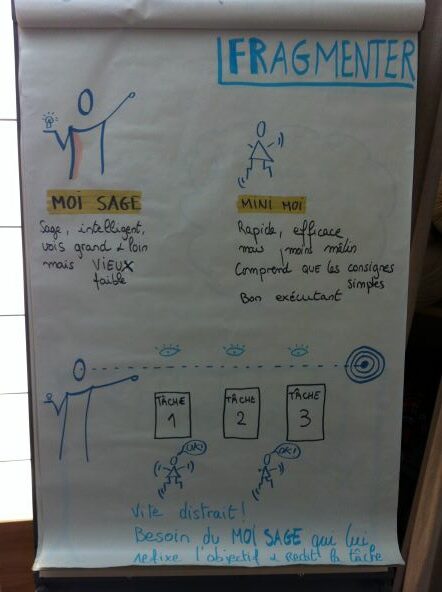 FRAGMENTER
MOI SAGE
Sage, intelligent,
vois grand & loin
mais VIEUX
faible
MINI MOI
Rapide, efficace
mais moins malin
Comprend que les consignes
simples
Bon exécutant
TÂCHE
1
TÂCHE
2
TÂCHE
3
OK!
OK!
Vite distrait!
Besoin du MOI SAGE qui lui
refixe l'objectif & redit la tâche